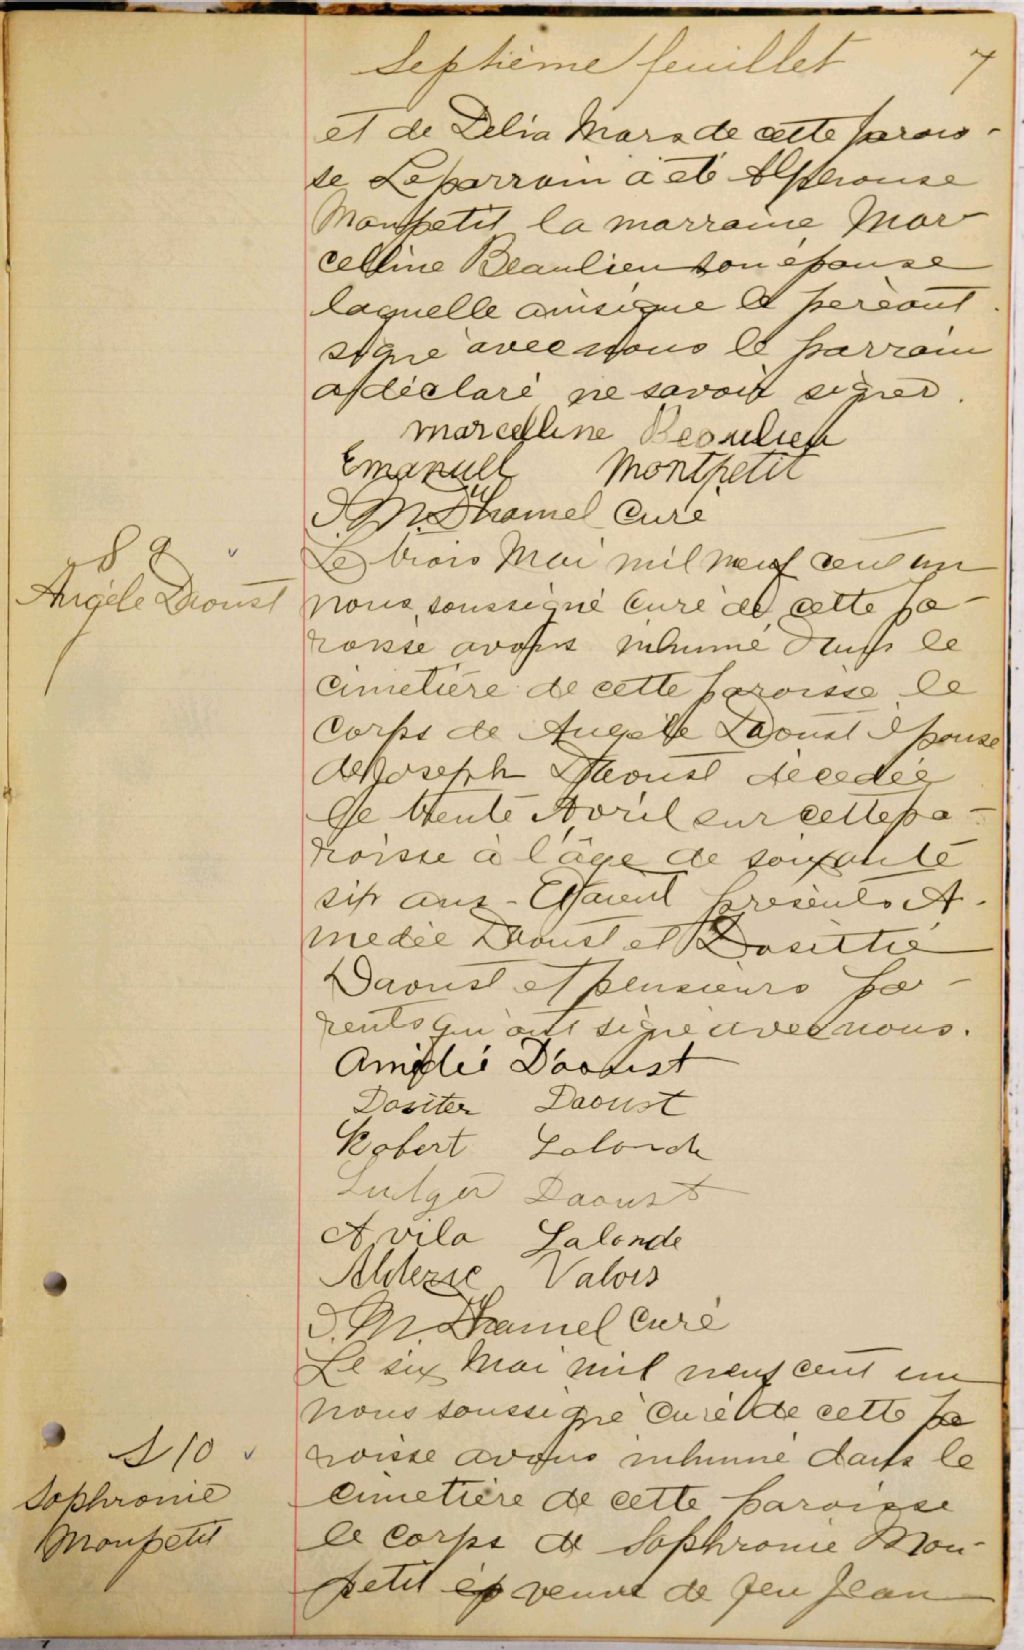 Septième feuillet 7
et de Delia Mars de cette parois-
se Le parrain a été Alphonse
Monpetit la marraine Mar-
celline Beaulieu son épouse
laquelle ainsi que le père ont
signé avec nous le parrain
a déclaré ne savoir signer.
Marcelline Beaulieu
Emanuell Montpetit
J. M. Duhamel Curé
S 9
Angèle Daoust
Le trois Mai mil neuf cent un
nous soussigné Curé de cette pa-
roisse avons inhumé dans le
cimetière de cette paroisse le
corps de Angèle Daoust épouse
de Joseph Daoust décédée
le trente Avril sur cette pa-
roisse à l'âge de soixante
six ans - Etaient présents A-
medée Daoust et Dosithé
Daoust et plusieurs pa-
rents qui ont signé avec nous.
Amédié Daoust
Dositer Daoust
Robert Lalonde
Ludger Daoust
Avila Lalonde
Valois
J. M. Duhamel Curé
S 10
Sophronie
Monpetit
Le six Mai mil neuf cent un
nous soussigné Curé de cette pa
roisse avons inhumé dans le
cimetière de cette paroisse
le corps de Sophronie Mon-
petit ép veuve de feu Jean